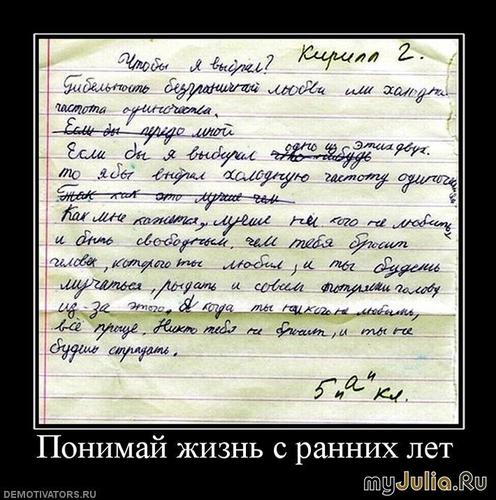 Кирилл Г.
Чтобы я выбрал?
Гибельность безграничной любви или холодная
частота одиночества.
Если бы передо мной
Если бы я выбирал что-нибудь одно из этих двух.
то я бы выбрал холодную частоту одиночества.
Так как это лучше чем
Как мне кажется, лучше ни кого не любить
и быть свободным, чем тебя бросит
человек, которого ты любил, и ты будешь
мучаться, рыдать и совсем потеряеш голову
из-за этого. А когда ты ни кого не любишь,
всё проще. Никто тебя не бросит, и ты не
будешь страдать.
5 "а" кл.
Понимай жизнь с ранних лет
DEMOTIVATORS.RU
myJulia.Ru